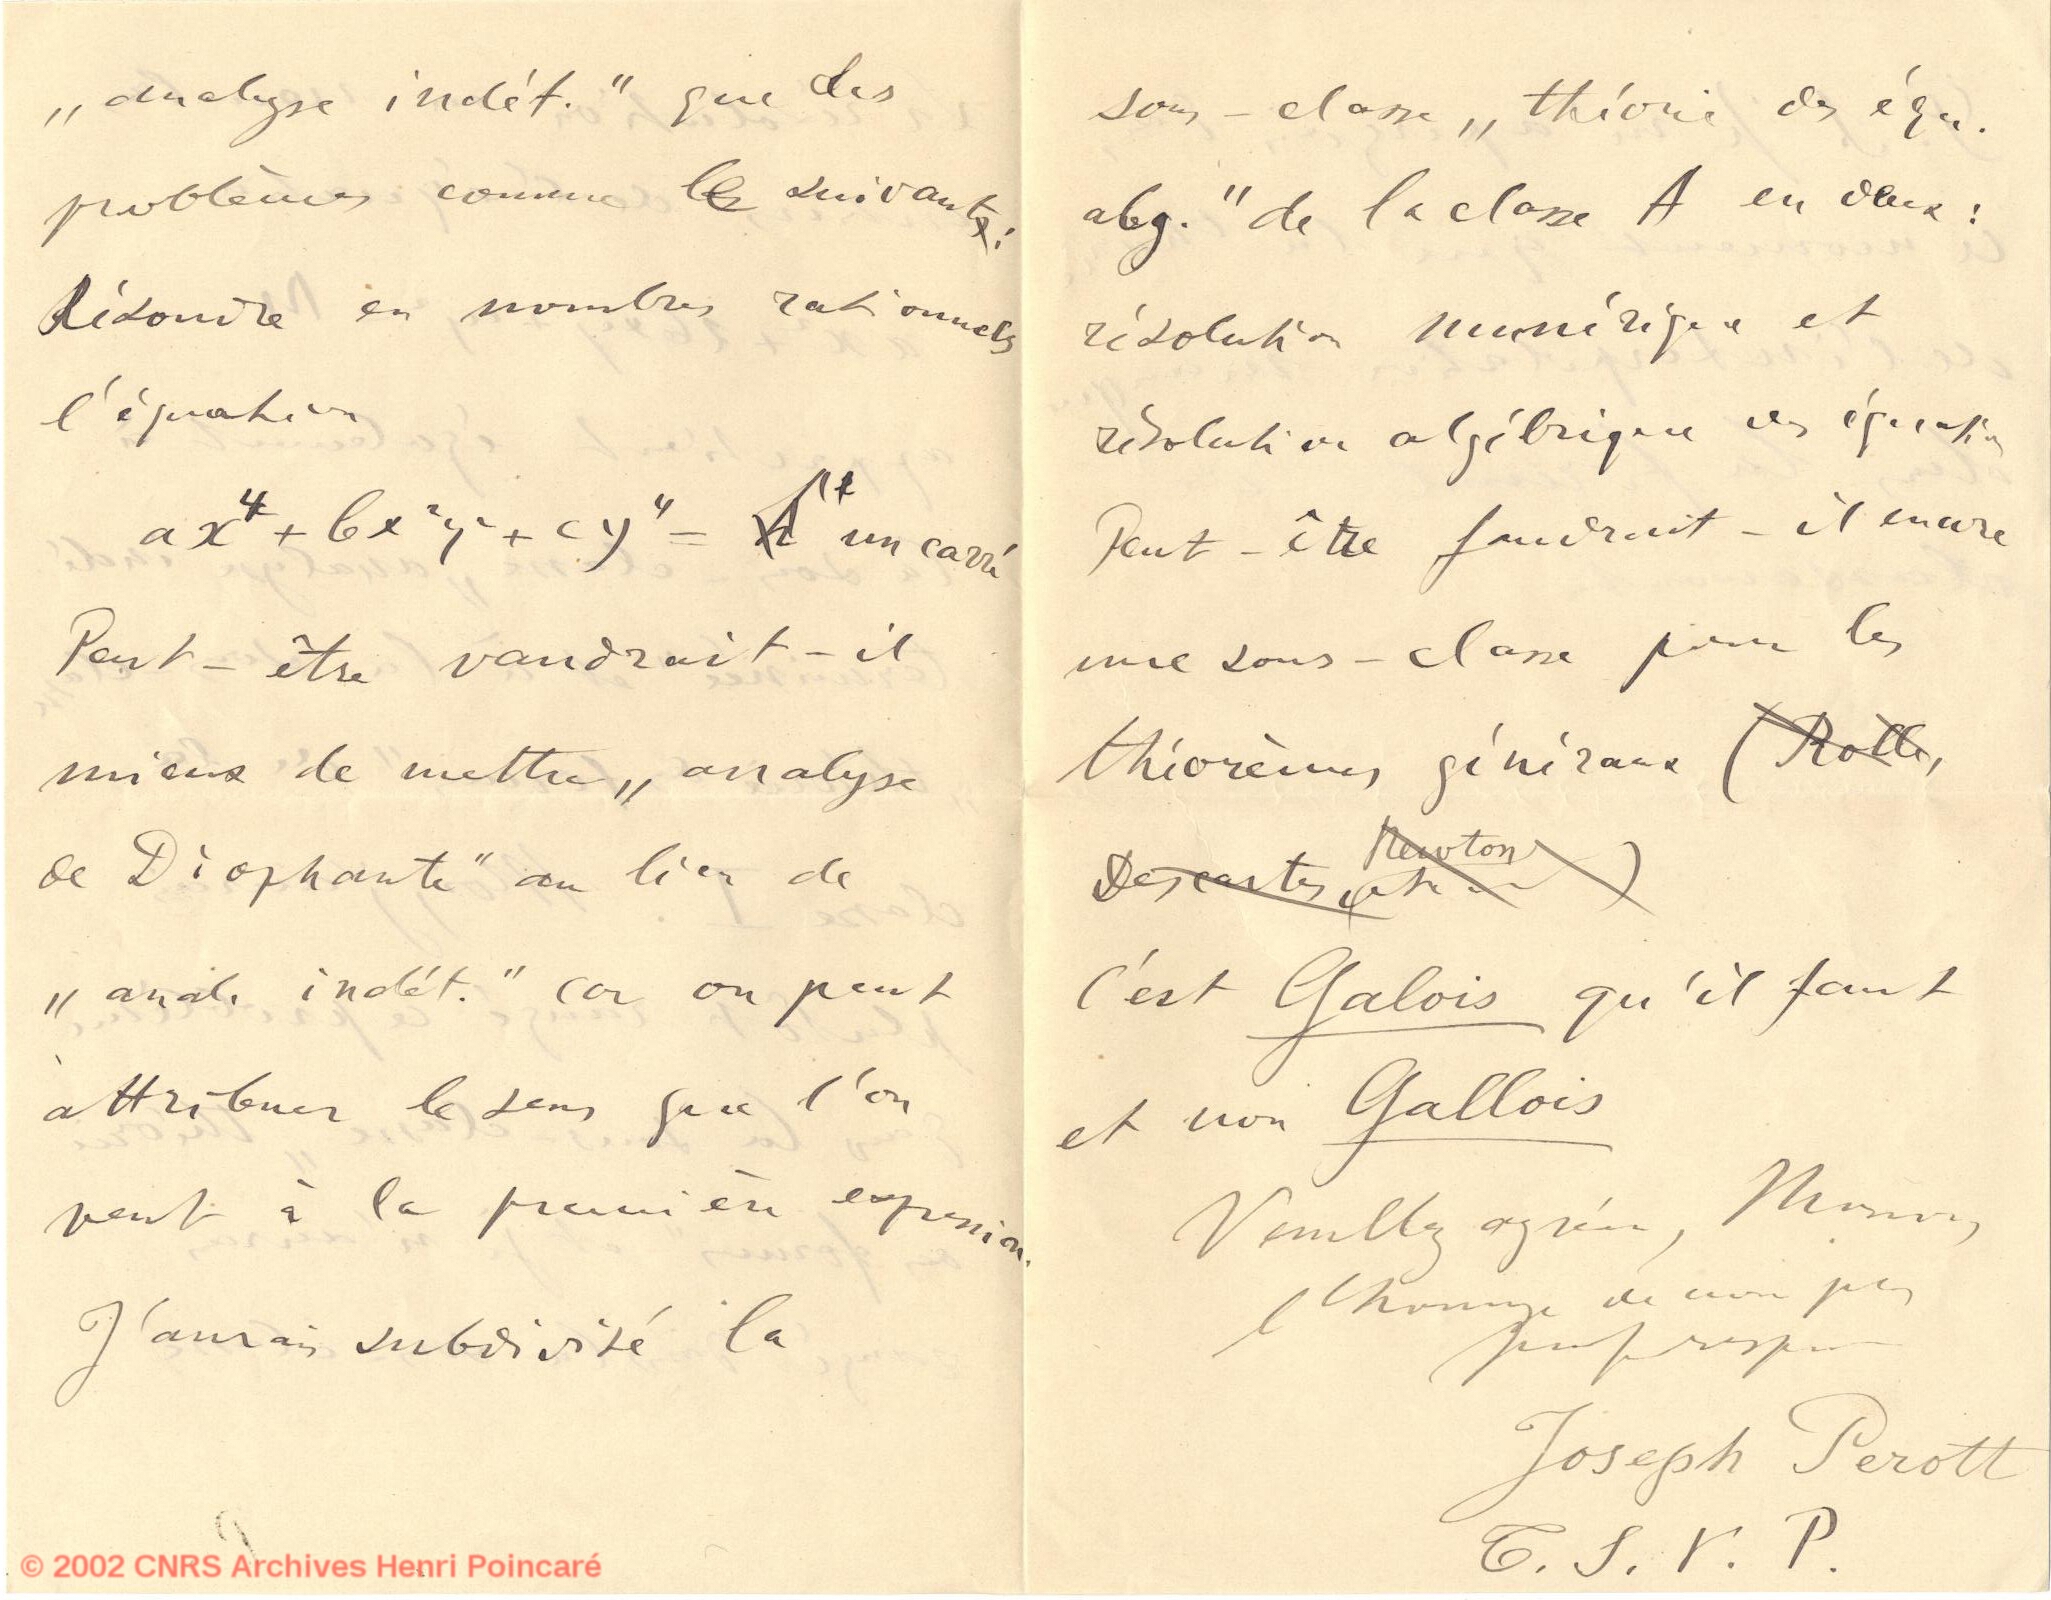 „analyse indét." que des
problèmes comme le suivant:
Résoudre en nombres rationnels
l'équation
ax⁴ + bx²y² + cy⁴ = à un carré
Peut-être vaudrait-il
mieux de mettre „analyse
de Diophante" au lieu de
„anal. indét." car on peut
attribuer le sens que l'on
veut à la première expression.
J'aurais subdivisé la
© 2002 CNRS Archives Henri Poincaré
sous-classe „théorie des équ.
alg." de la classe A en deux:
résolution numérique et
résolution algébrique des équations
Peut-être faudrait-il encore
une sous-classe pour les
théorèmes généraux (Rolle,
Newton
Descartes, )
C'est Galois qu'il faut
et non Gallois
Veuillez agréer, Monsieur,
l'hommage de mon plus
profond respect
Joseph Perott
T. S. V. P.